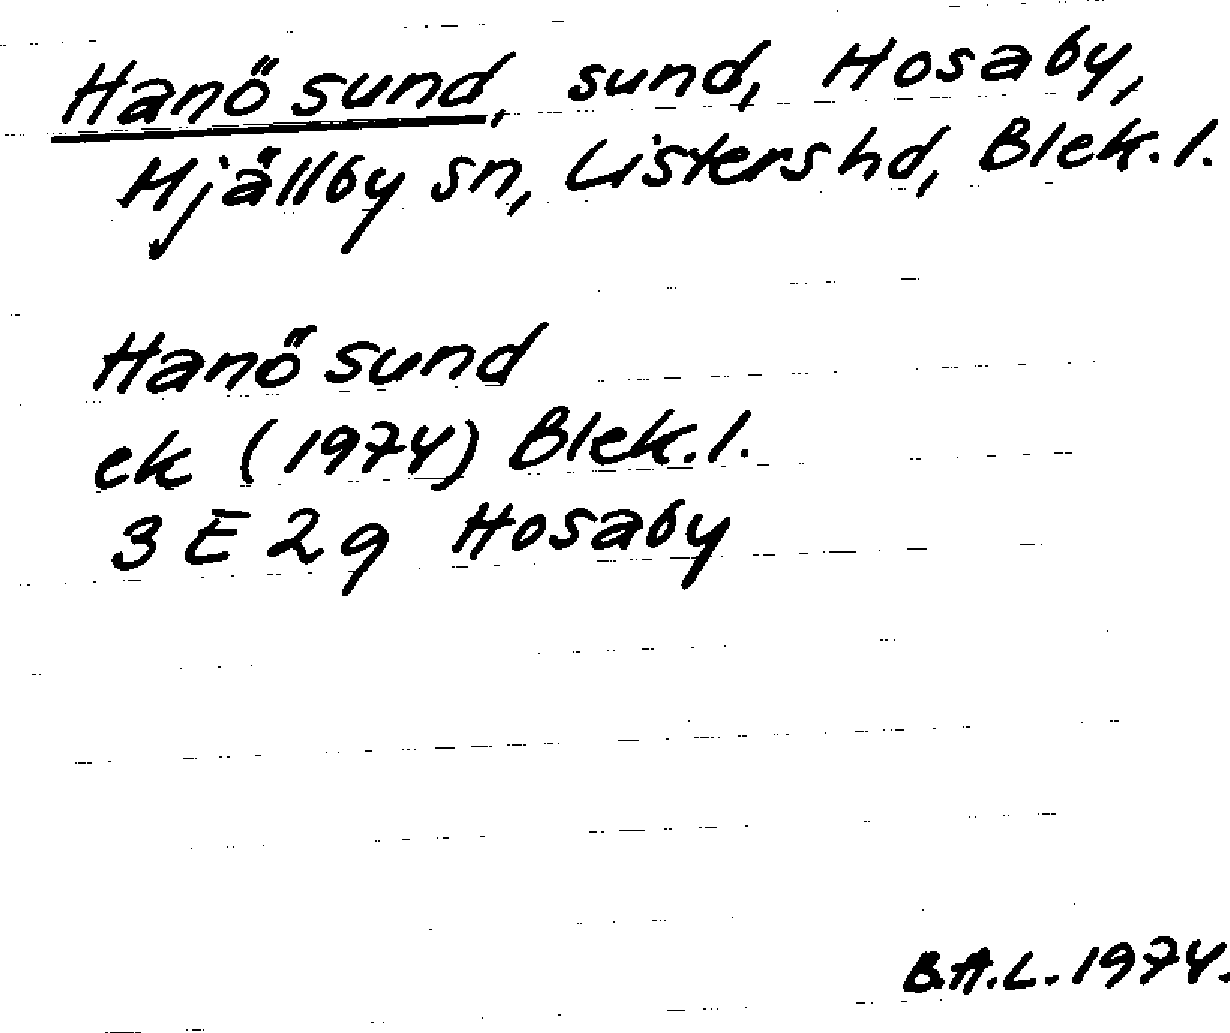 Hanö sund, sund, Hosaby,
Mjällby sn, Listers hd, Blek. l.
Hanö sund
ek (1974) Blek. l.
3 E 2 g Hosaby
B.A.L. 1974.